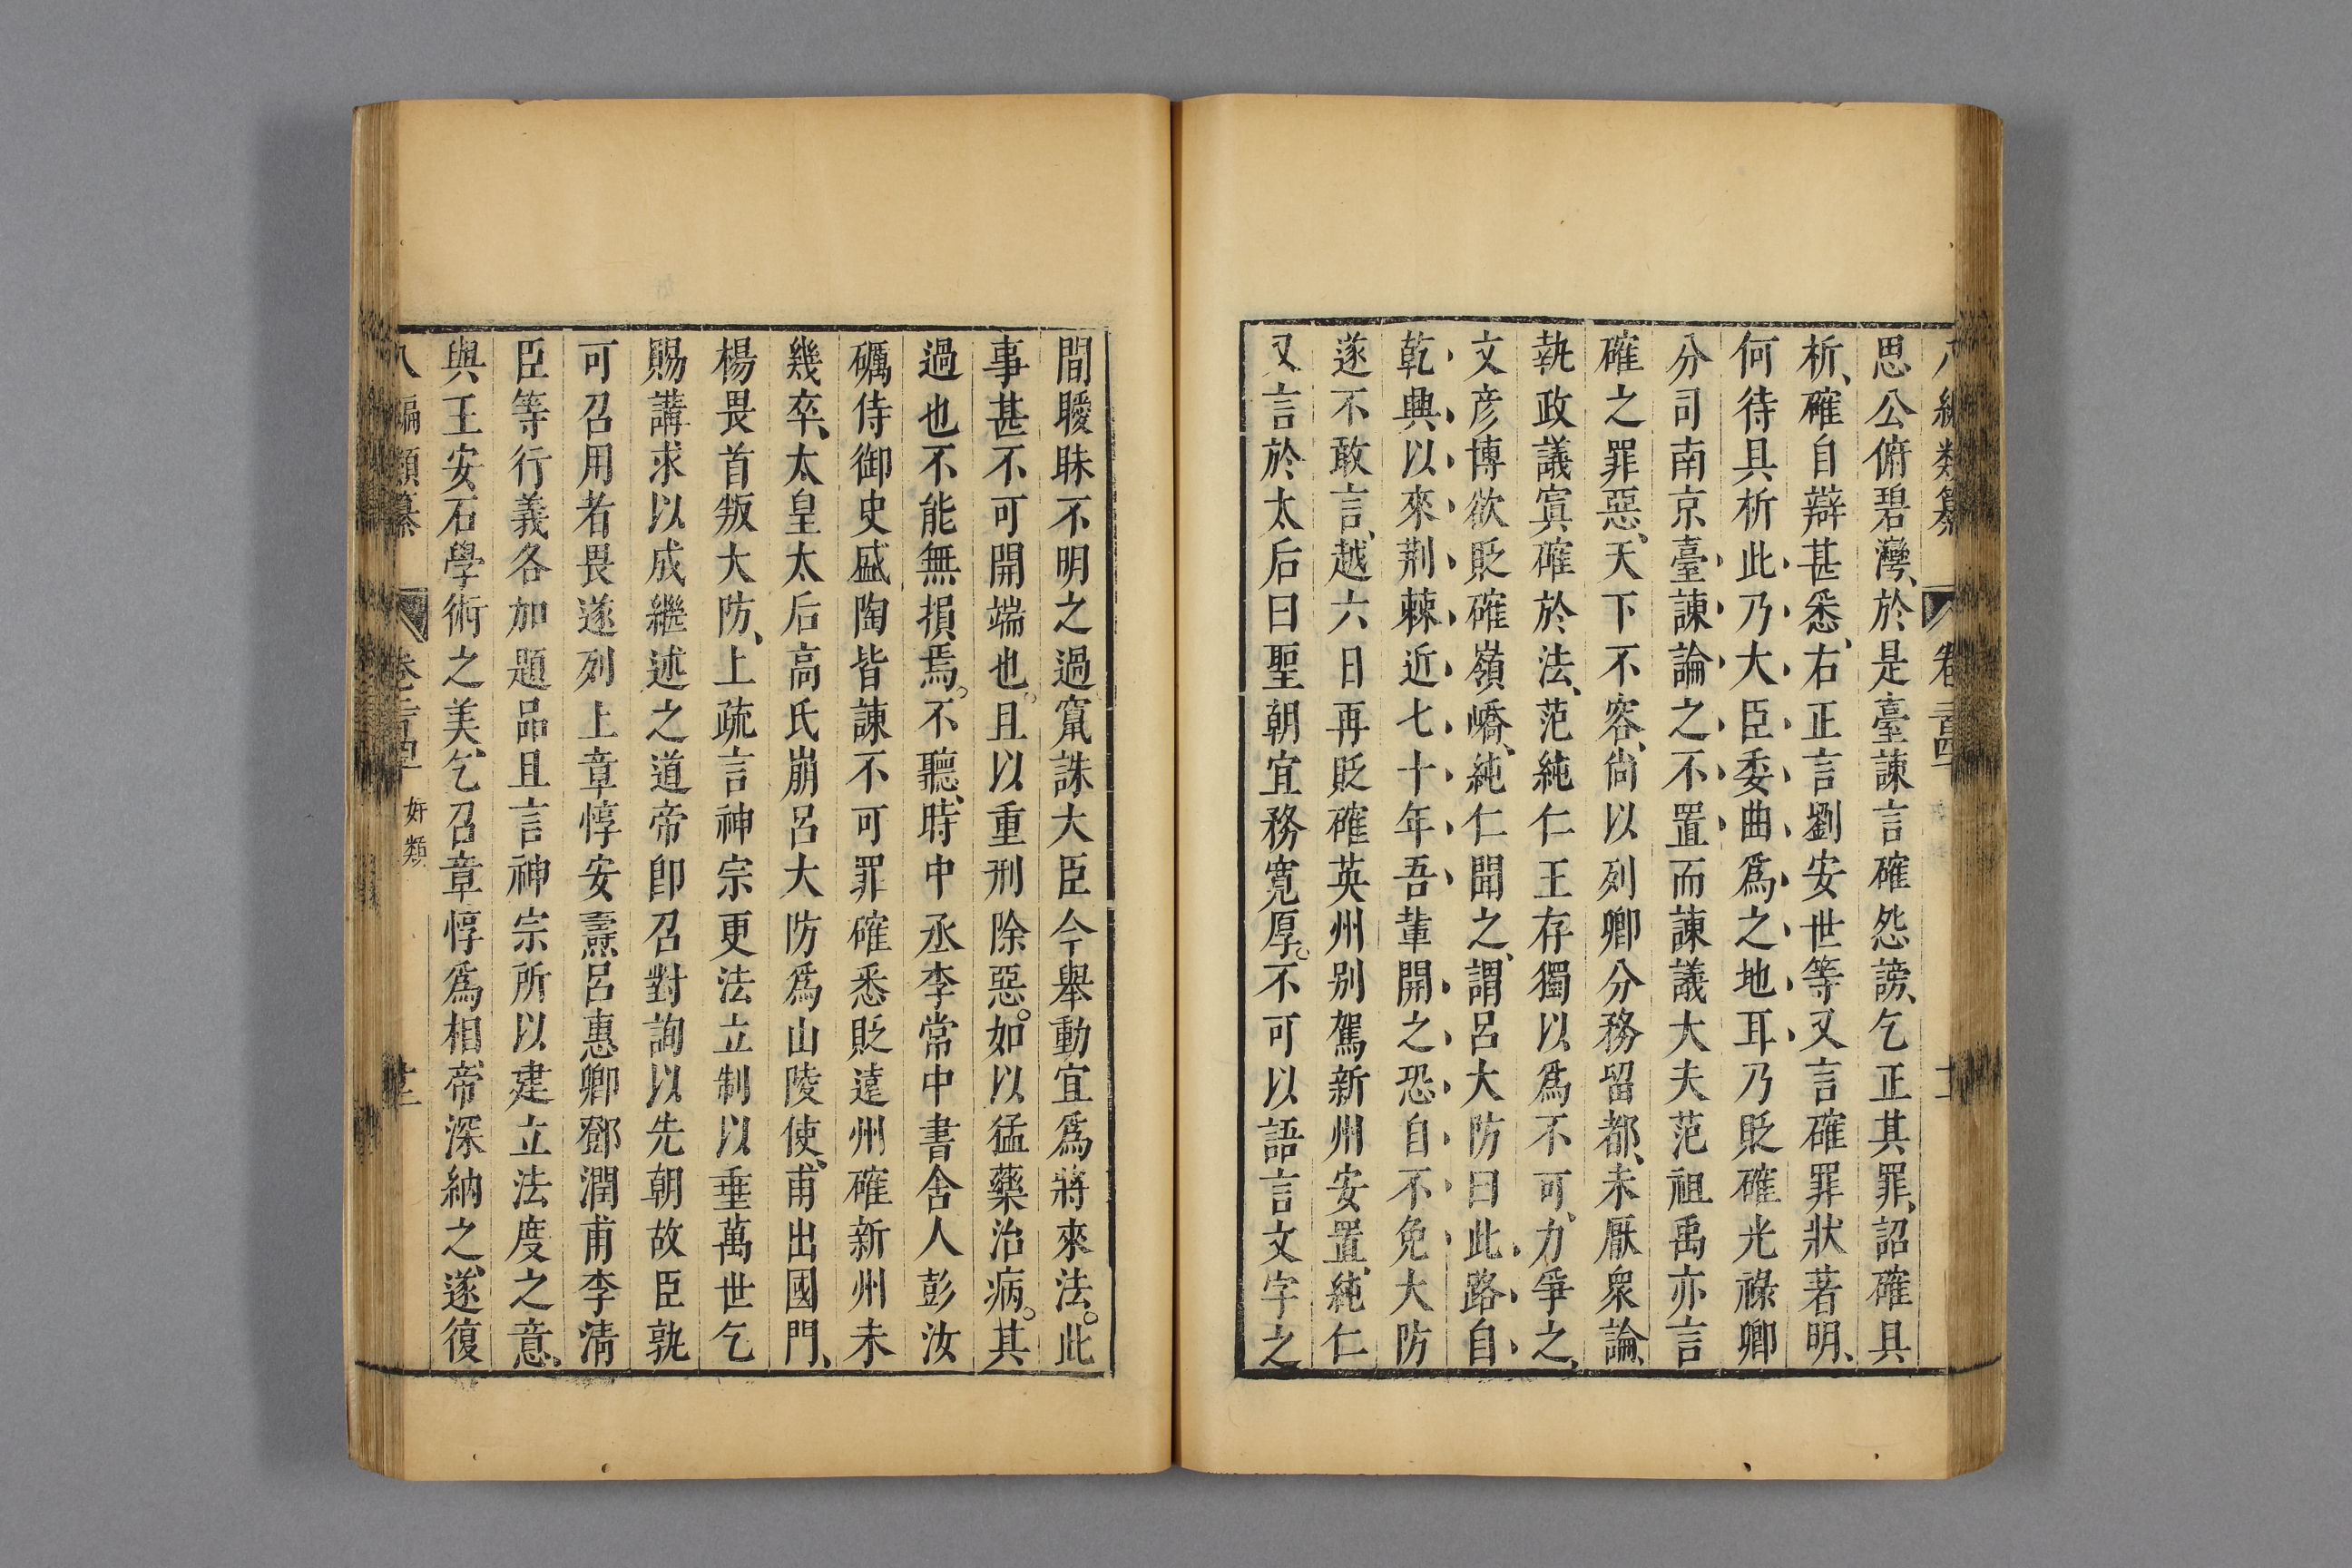 思公俯碧灣、於是臺諫言確怨謗、乞正其罪、詔確具
析、確自辯甚悉、右正言劉安世等又言確罪狀著明、
何待具析此乃大臣委曲爲之地耳乃貶確光祿卿
分司南京臺諫論之不置而諫議大夫范祖禹亦言
確之罪惡、天下不容、尙以列卿分務留都、未厭衆論、
執政議寘確於法、范純仁王存獨以爲不可、力爭之、
文彥博欲貶確嶺嶠、純仁聞之、謂呂大防曰此路自
乾興以來荆棘近七十年吾輩開之恐自不免大防
遂不敢言、越六日再貶確英州別駕新州安置、純仁
又言於太后曰聖朝宜務寬厚。不可以語言文字之
間曖昧不明之過竄誅大臣今舉動宜爲將來法。此
事甚不可開端也。且以重刑除惡。如以猛藥治病。其
過也不能無損焉。不聽、時中丞李常中書舍人彭汝
礪侍御史盛陶皆諫不可罪確悉貶遠州確新州未
幾卒、太皇太后高氏崩呂大防爲山陵使、甫出國門、
楊畏首叛大防、上疏言神宗更法立制以垂萬世乞
賜講求以成繼述之道帝卽召對詢以先朝故臣孰
可召用者畏遂列上章惇安燾呂惠卿鄧潤甫李清
臣等行義各加題品且言神宗所以建立法度之意、
與王安石學術之美、乞召章惇爲相、帝深納之、遂復
八編類纂 奸類